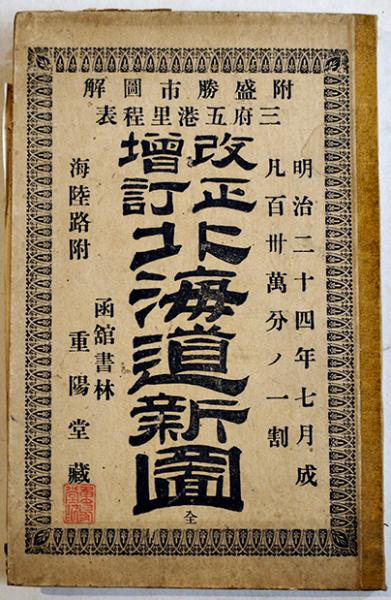 附盛勝市圖解
三府五港里程表
明治二十四年七月成
凡百卅萬分ノ一割
改正
增訂
北海道新圖
全
海陸路附
函館書林
重陽堂藏